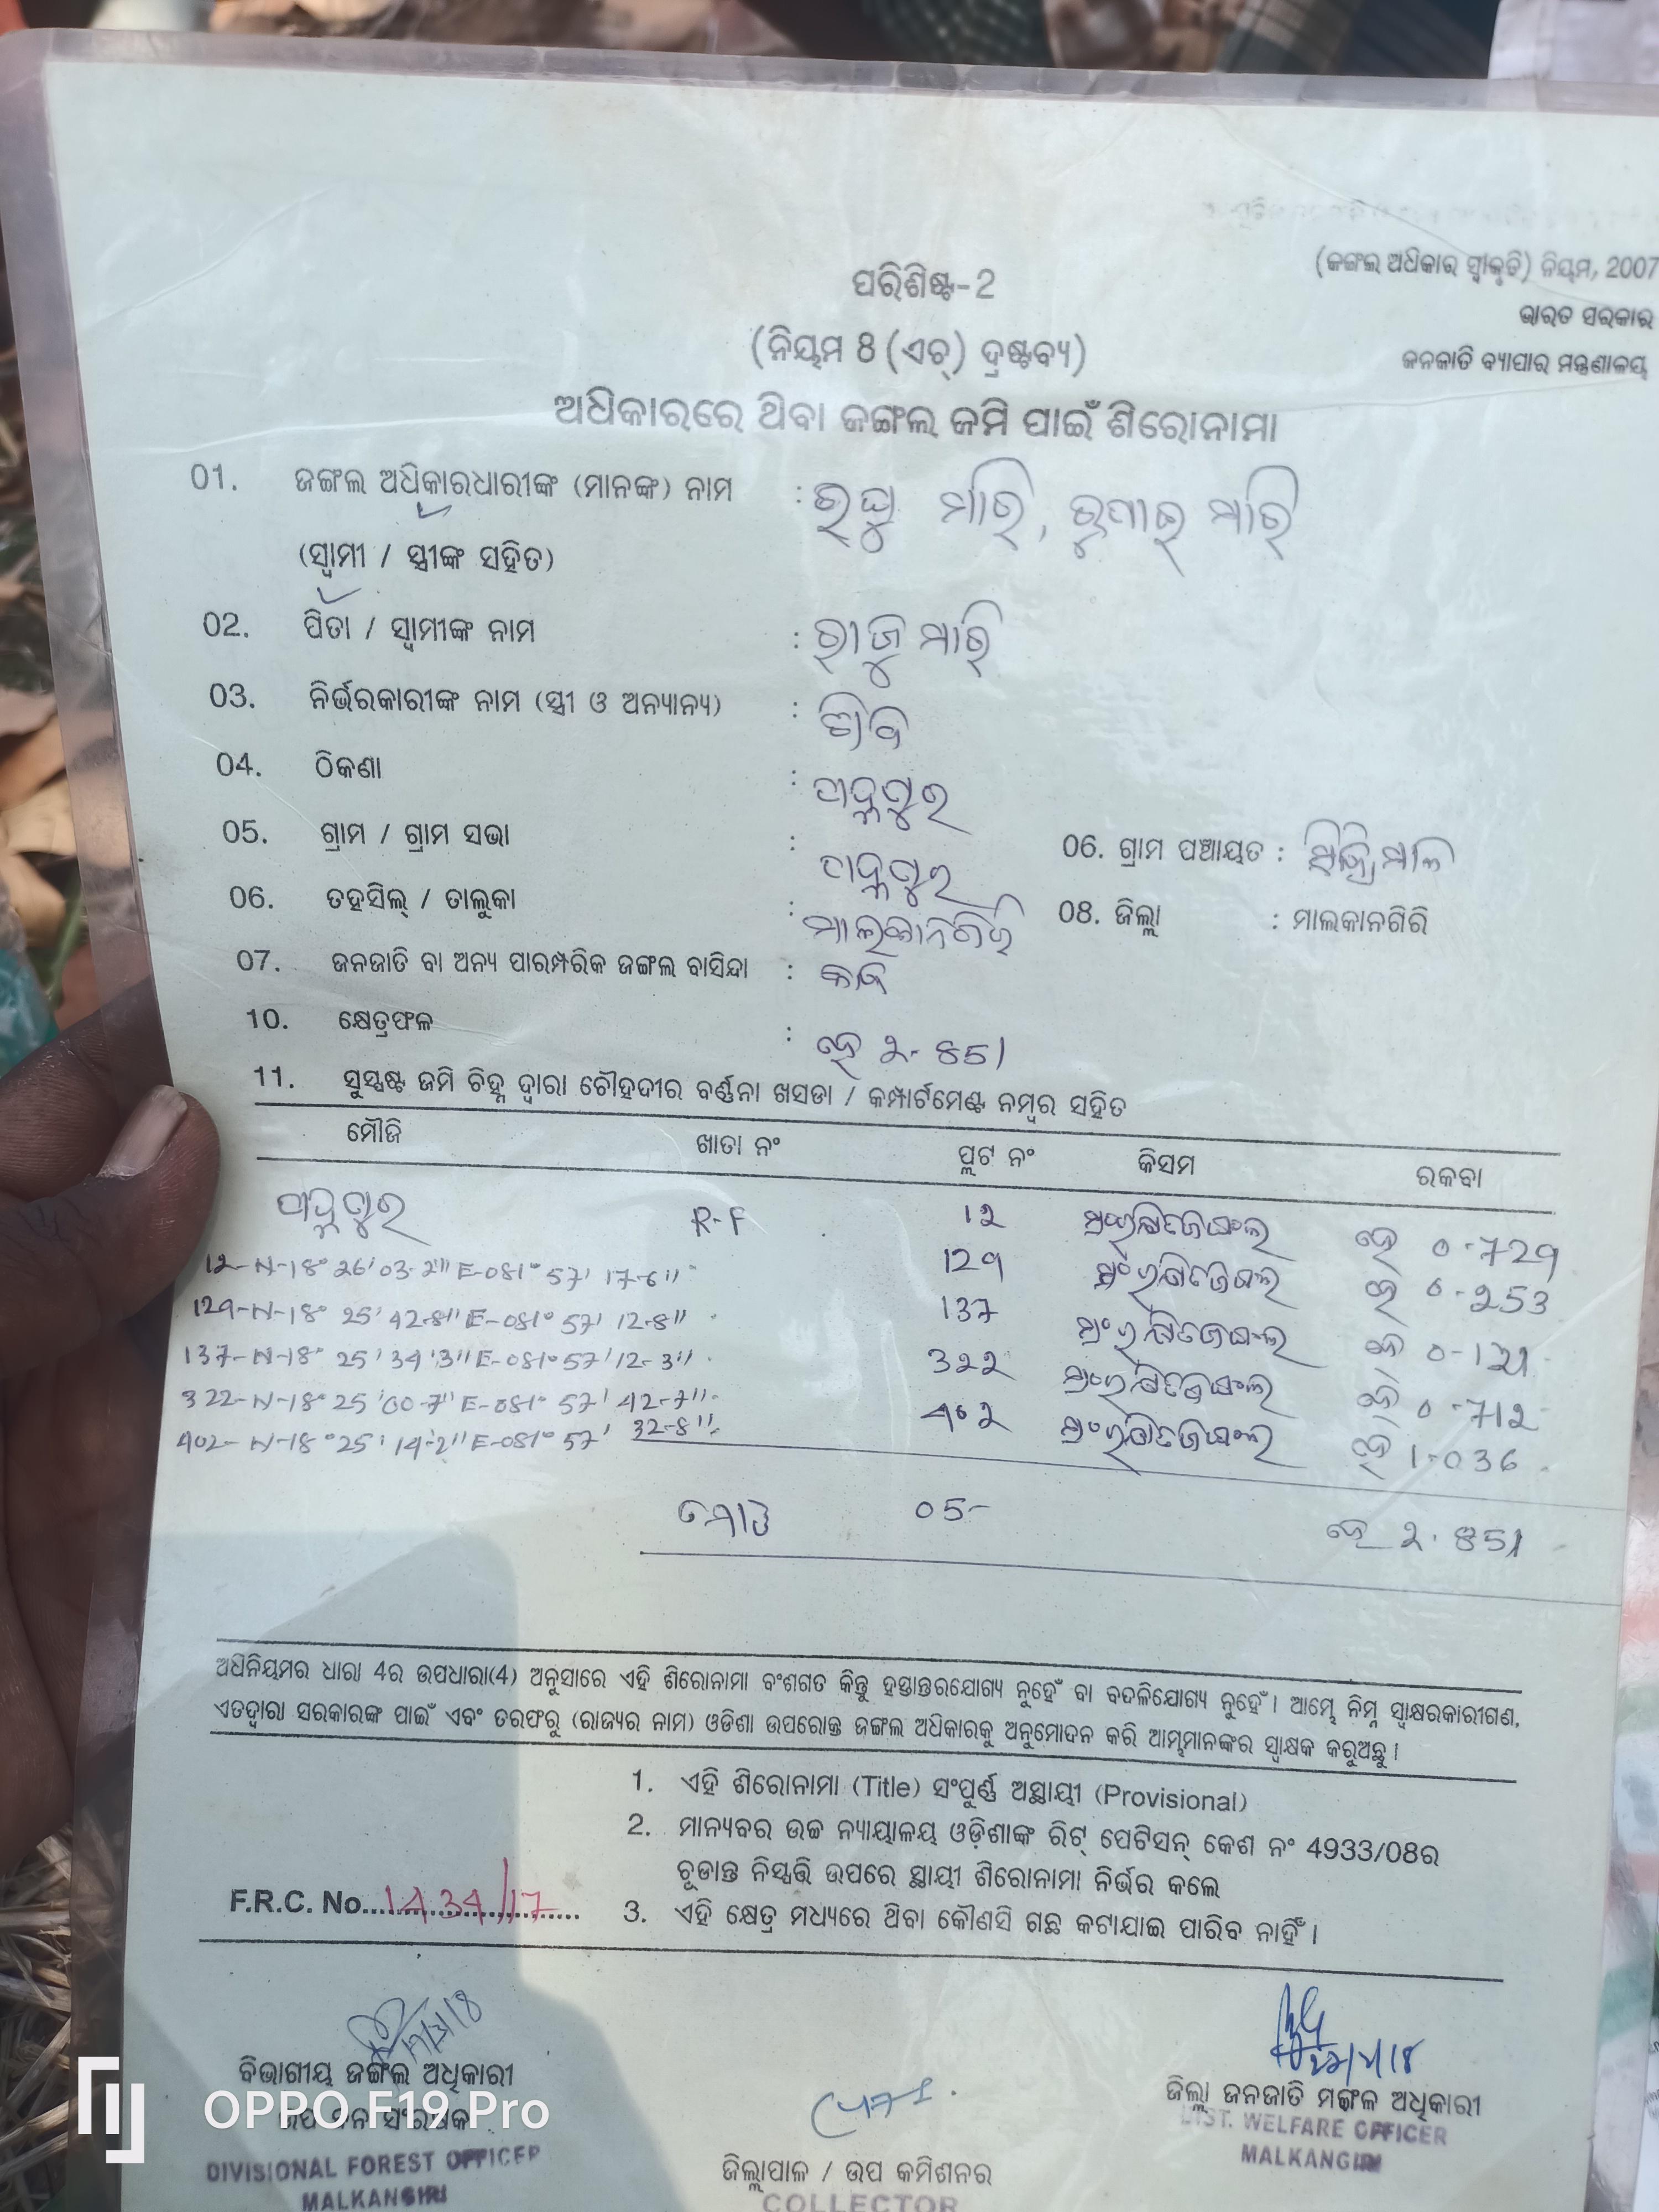 (ଜଙ୍ଗଲ ଅଧିକାର ସ୍ୱୀକୃତି) ନିୟମ, 2007
ଭାରତ ସରକାର
ଜନଜାତି ବ୍ୟାପାର ମନ୍ତ୍ରଣାଳୟ
ପରିଶିଷ୍ଟ-2
(ନିୟମ 8 (ଏଚ୍) ଦ୍ରଷ୍ଟବ୍ୟ)
ଅଧିକାରରେ ଥିବା ଜଙ୍ଗଲ ଜମି ପାଇଁ ଶିରୋନାମା
01. ଜଙ୍ଗଲ ଅଧିକାରଧାରୀଙ୍କ (ମାନଙ୍କ) ନାମ : ରଘୁ ମାରି, ମାରି
(ସ୍ୱାମୀ / ସ୍ତ୍ରୀଙ୍କ ସହିତ)
02. ପିତା / ସ୍ୱାମୀଙ୍କ ନାମ : ରାଜୁ ମାରି
03. ନିର୍ଭରକାରୀଙ୍କ ନାମ (ସ୍ତ୍ରୀ ଓ ଅନ୍ୟାନ୍ୟ) :
04. ଠିକଣା :
05. ଗ୍ରାମ / ଗ୍ରାମ ସଭା :
06. ଗ୍ରାମ ପଞ୍ଚାୟତ :
06. ତହସିଲ୍ / ତାଲୁକା : ମାଲକାନଗିରି
08. ଜିଲ୍ଲା : ମାଲକାନଗିରି
07. ଜନଜାତି ବା ଅନ୍ୟ ପାରମ୍ପରିକ ଜଙ୍ଗଲ ବାସିନ୍ଦା :
10. କ୍ଷେତ୍ରଫଳ : ହେ 2.851
11. ସୁସ୍ପଷ୍ଟ ଜମି ଚିହ୍ନ ଦ୍ୱାରା ଚୌହଦୀର ବର୍ଣ୍ଣନା ଖସଡା / କମ୍ପାର୍ଟମେଣ୍ଟ ନମ୍ବର ସହିତ
ମୌଜି ଖାତା ନଂ ପ୍ଲଟ ନଂ କିସମ ରକବା
R-F 12 ହେ 0-729
12-N-18° 26' 03-2" E-081° 57' 17-6" 129 ହେ 0-253
129-N-18° 25' 42-8" E-081° 57' 12-8" 137 ହେ 0-121
137-N-18° 25' 34'3" E-081° 57' 12-3" 322 ହେ 0-712
322-N-18° 25' 00-7" E-081° 57' 42-7" 402 ହେ 1-036
402-N-18° 25' 14-2" E-081° 57' 32-8"
ମୋଟ 05- ହେ 2.851
ଅଧିନିୟମର ଧାରା 4ର ଉପଧାରା(4) ଅନୁସାରେ ଏହି ଶିରୋନାମା ବଂଶଗତ କିନ୍ତୁ ହସ୍ତାନ୍ତରଯୋଗ୍ୟ ନୁହେଁ ବା ବଦଳିଯୋଗ୍ୟ ନୁହେଁ। ଆମ୍ଭେ ନିମ୍ନ ସ୍ୱାକ୍ଷରକାରୀଗଣ,
ଏତଦ୍ୱାରା ସରକାରଙ୍କ ପାଇଁ ଏବଂ ତରଫରୁ (ରାଜ୍ୟର ନାମ) ଓଡିଶା ଉପରୋକ୍ତ ଜଙ୍ଗଲ ଅଧିକାରକୁ ଅନୁମୋଦନ କରି ଆମ୍ଭମାନଙ୍କର ସ୍ୱାକ୍ଷକ କରୁଅଛୁ।
1. ଏହି ଶିରୋନାମା (Title) ସଂପୂର୍ଣ୍ଣ ଅସ୍ଥାୟୀ (Provisional)
2. ମାନ୍ୟବର ଉଚ୍ଚ ନ୍ୟାୟାଳୟ ଓଡ଼ିଶାଙ୍କ ରିଟ୍ ପେଟିସନ୍ କେଶ ନଂ 4933/08ର
ଚୂଡାନ୍ତ ନିସ୍ପତ୍ତି ଉପରେ ସ୍ଥାୟୀ ଶିରୋନାମା ନିର୍ଭର କଲେ
F.R.C. No. 1434/17
3. ଏହି କ୍ଷେତ୍ର ମଧ୍ୟରେ ଥିବା କୌଣସି ଗଛ କଟାଯାଇ ପାରିବ ନାହିଁ।
ବିଭାଗୀୟ ଜଙ୍ଗଲ ଅଧିକାରୀ
ଉପ ବନ ସଂରକ୍ଷକ
DIVISIONAL FOREST OFFICER
MALKANGIRI
ଜିଲ୍ଲାପାଳ / ଉପ କମିଶନର
COLLECTOR
ଜିଲ୍ଲା ଜନଜାତି ମଙ୍ଗଳ ଅଧିକାରୀ
DIST. WELFARE OFFICER
MALKANGIRI
OPPO F19 Pro